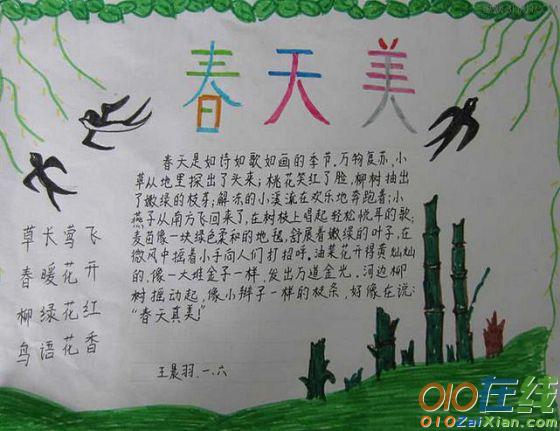 春天美
春天是如诗如歌如画的季节,万物复苏,小
草从地里探出了头来;桃花笑红了脸,柳树抽出
了嫩绿的枝芽;解冻的小溪流在欢乐地奔跑着;小
燕子从南方飞回来了,在树枝上唱起轻松悦耳的歌;
麦苗像一块绿色柔和的地毯,舒展着嫩绿的叶子,在
微风中摇着小手向人们打招呼,油菜花开得黄灿灿
的,像一大堆金子一样,发出万道金光。河边柳
树摇动起,像小辫子一样的枝条,好像在说:
“春天真美!”
草长莺飞
春暖花开
柳绿花红
鸟语花香
王晨羽.一.六
010在线
010ZaiXian.com